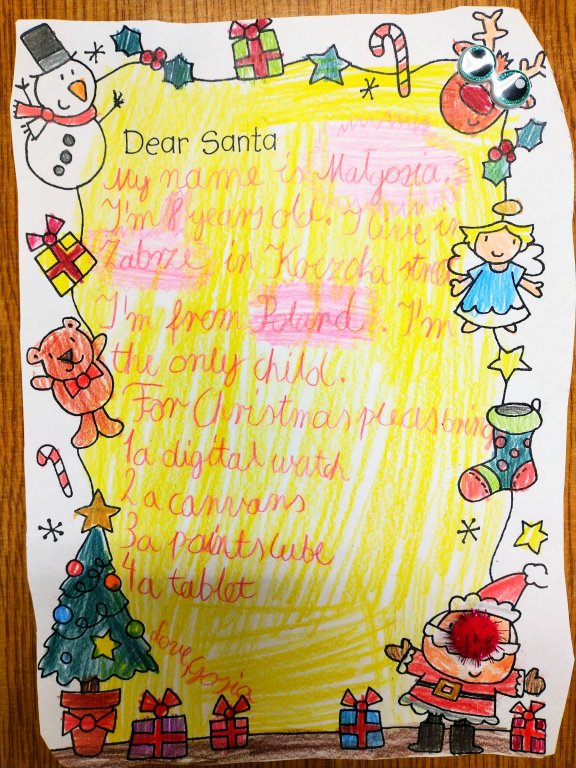 Dear Santa
My name is Małgosia.
I'm 8 years old. I live in
Zabrze, in Koczoka street
I'm from Poland. I'm
the only child.
For Christmas pleas bring
1 a digital watch
2 a canvans
3 a paints lube
4 a tablet
Love Gosia